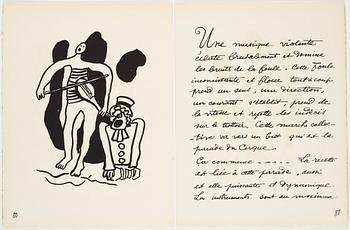 Une musique violente
éclate brutalement et domine
les bruits de la foule. Cette foule
inconsistante et floue tout à coup
prend un sens, une direction,
un courant s'établit, prend de
la vitesse et rejette les indécis
sur le trottoir. Cette marche collec-
tive va vers un but qui est la
parade du Cirque.
Ça commence _ _ _ _ _ La recette
est liée à cette parade, aussi
est elle puissante et dynamique.
Les instruments sont au maximum
80
81